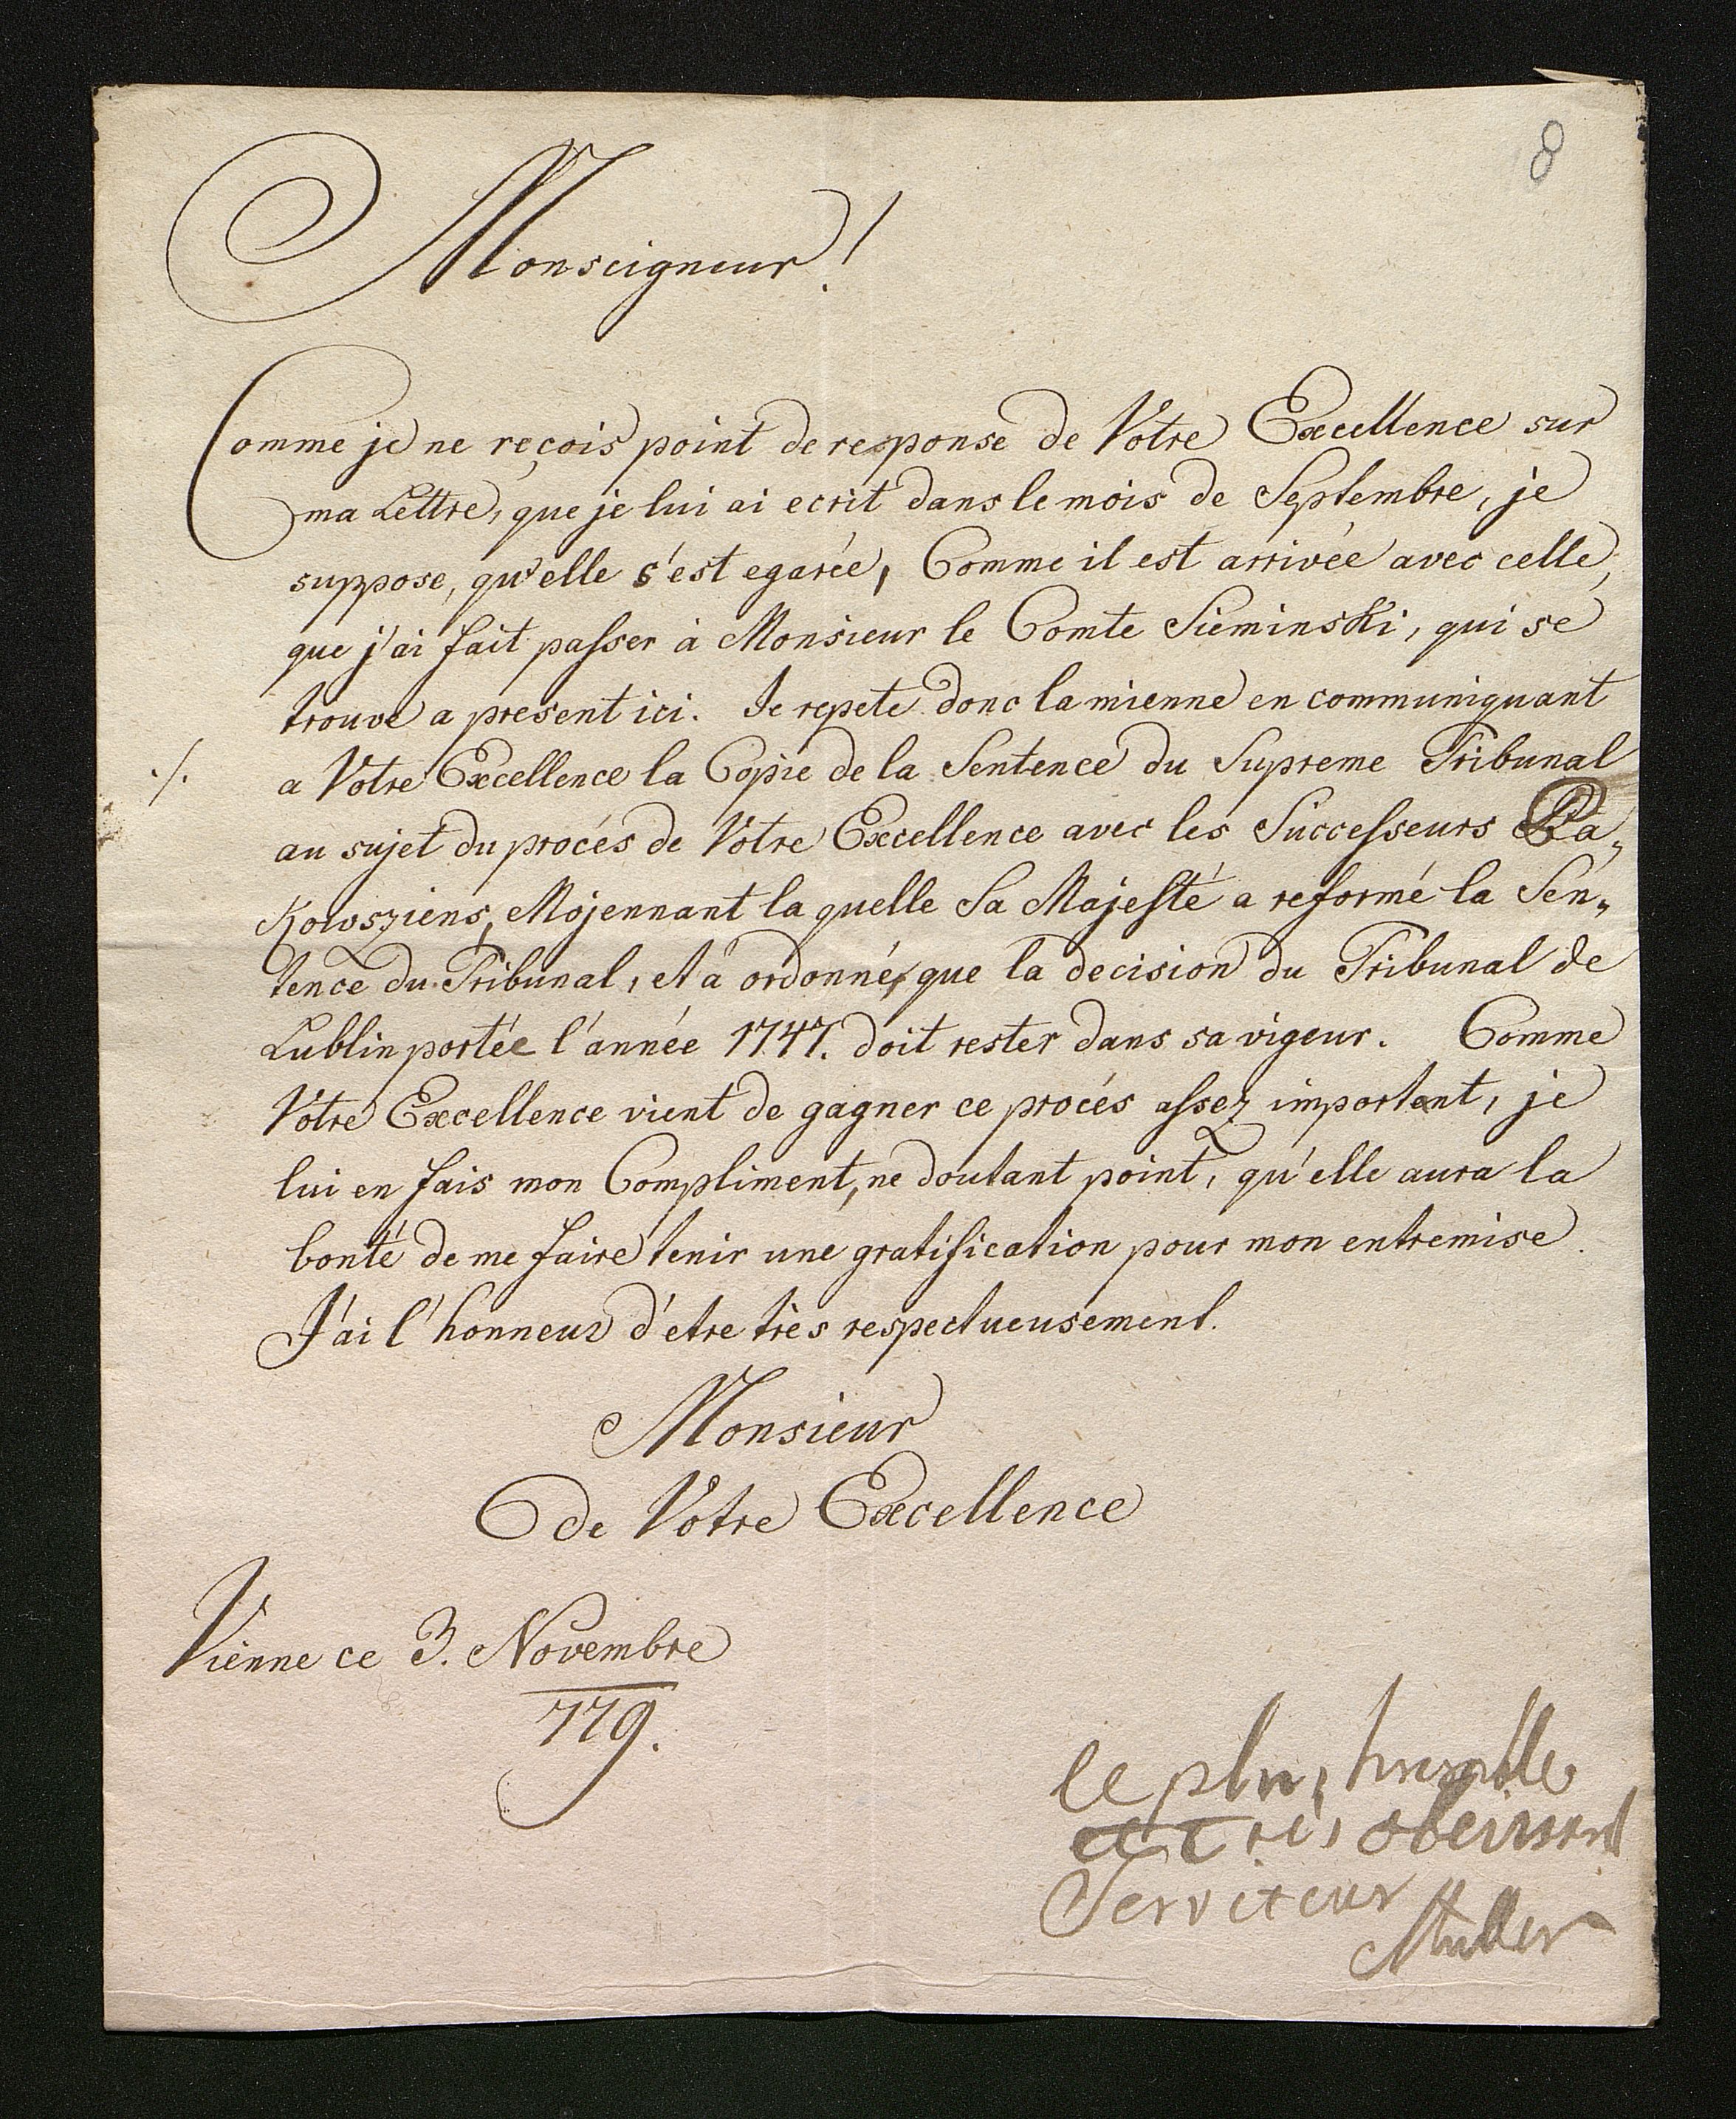 8
Monseigneur!
Comme je ne reçois point de response de Votre Excellence sur
ma Lettre, que je lui ai ecrit dans le mois de Septembre, je
suppose, qu'elle s'est egarée, Comme il est arrivée avec celle,
que j'ai fait passer à Monsieur le Comte Sieminski, qui se
trouve a present ici. Je repete donc la mienne en communiquant
./. a Votre Excellence la Copie de la Sentence du Supreme Tribunal
au sujet du procés de Votre Excellence avec les Successeurs Ra„
Kowsziens, Mojennant la quelle Sa Majesté a reformé la Sen„
tence du Tribunal, et a ordonné, que la decision du Tribunal de
Lublin portée l'année 1747. doit rester dans sa vigeur. Comme
Votre Excellence vient de gagner ce procés assez important, je
lui en fais mon Compliment, ne doutant point, qu'elle aura la
bonté de me faire tenir une gratification pour mon entremise.
J'ai l'honneur d'etre très respectueusement.
Monsieur
de Votre Excellence
Vienne ce 3. Novembre
779.
le plus humble
et tres obeissant
Serviteur
Muller